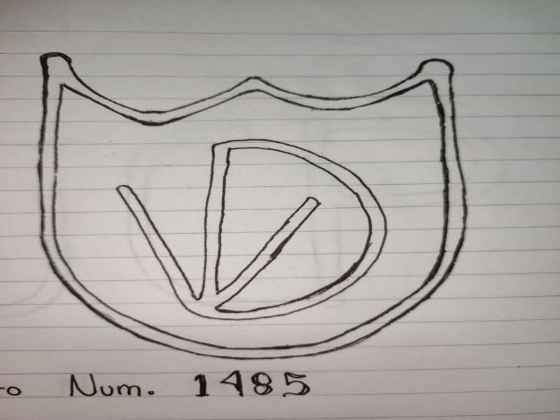 VD
o Num. 1485